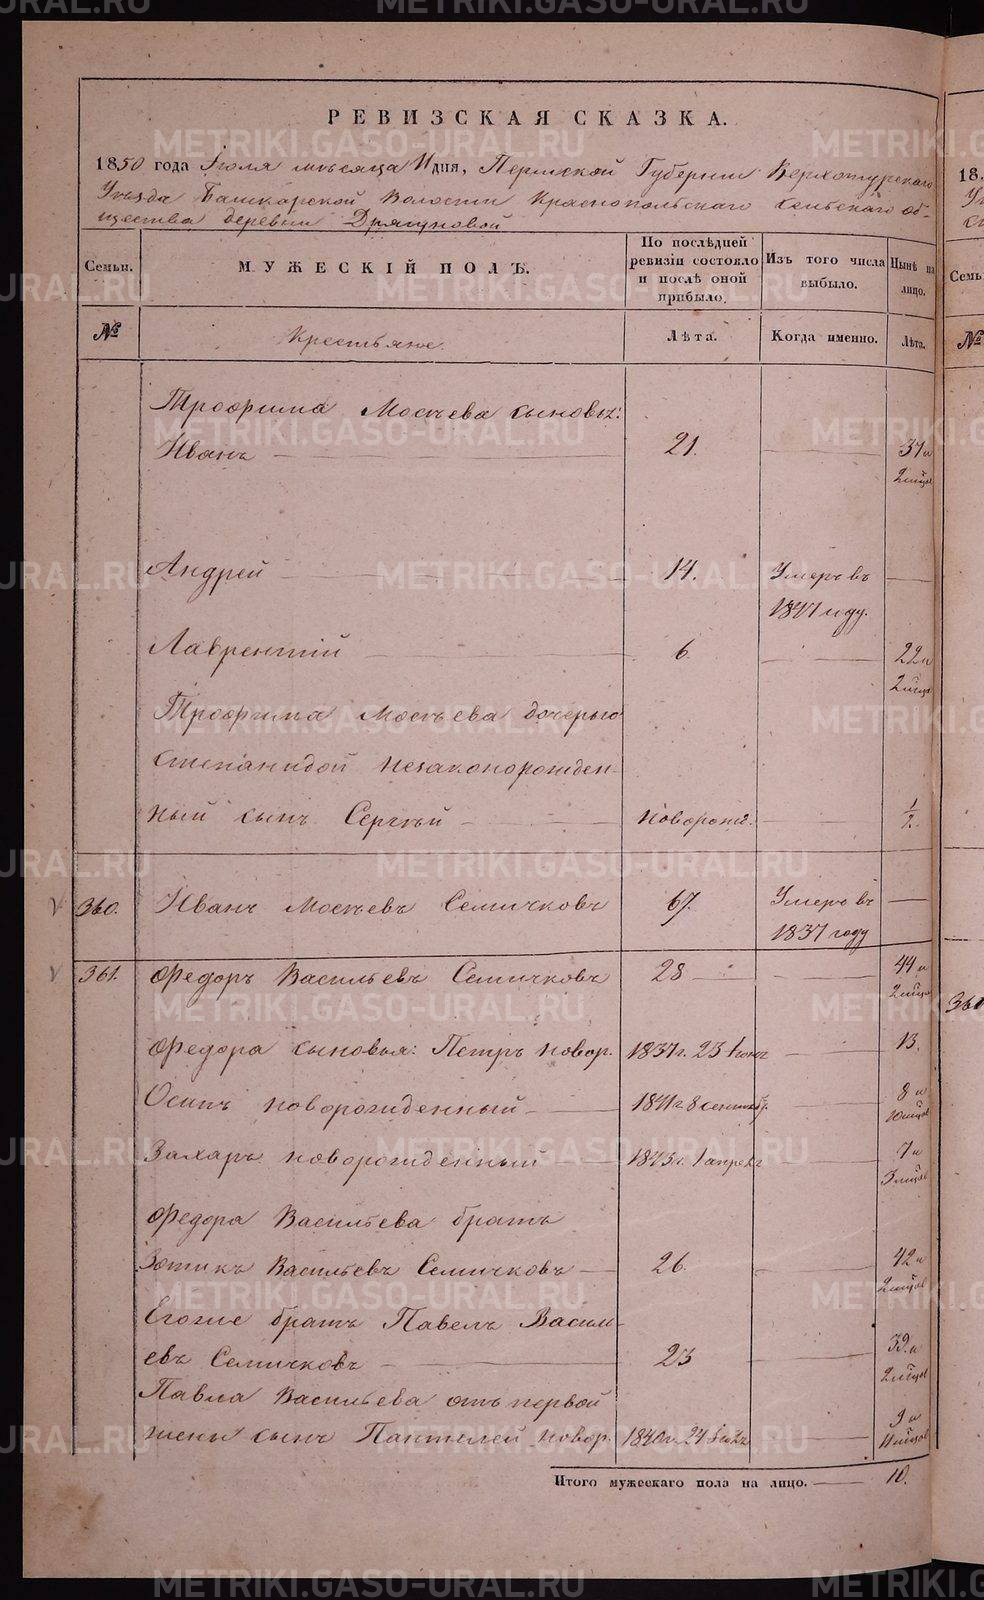 РЕВИЗСКАЯ СКАЗКА.
1850 года Іюля мѣсяца 11 дня, Пермской Губерніи Верхотурскаго
Уѣзда Башкарской Волости Краснопольскаго сельскаго об-
щества деревни Дрягуновой
Семьи. МУЖЕСКІЙ ПОЛЪ. По послѣдней ревизіи состояло и послѣ оной прибыло. Изъ того числа выбыло. Нынѣ на лицо.
№ Крестьяне. Лѣта. Когда именно. Лѣта.
Трофима Мосѣева сыновья:
Иванъ 21. 37 и
2 мѣся
Андрей 14. Умеръ въ
1847 году.
Лаврентій 6. 22 и
2 мѣся
Трофима Мосѣева дочерью
Степанидой незаконорожден-
ный сынъ Сергѣй новорожд. 1/2.
360. Иванъ Мосѣевъ Семичковъ 67. Умеръ въ
1837 году
361. Федоръ Васильевъ Семичковъ 28 44 и
2 мѣся
Федора сыновья: Петръ новор. 1837 г. 23 Іюня 13.
Осипъ новорожденный 1841 г. 8 сентяб. 8 и
10 мѣся
Захаръ новорожденный 1843 г. 1 апреля 7 и
3 мѣся
Федора Васильева братъ
Зотикъ Васильевъ Семичковъ 26. 42 и
2 мѣся
Егоже братъ Павелъ Василь-
евъ Семичковъ 23 39. и
2 мѣся
Павла Васильева отъ первой
жены сынъ Пантелей новор. 1840 г. 24 9 и
11 мѣся
Итого мужескаго пола на лицо. 10.
18.
№
361
METRIKI.GASO-URAL.RU